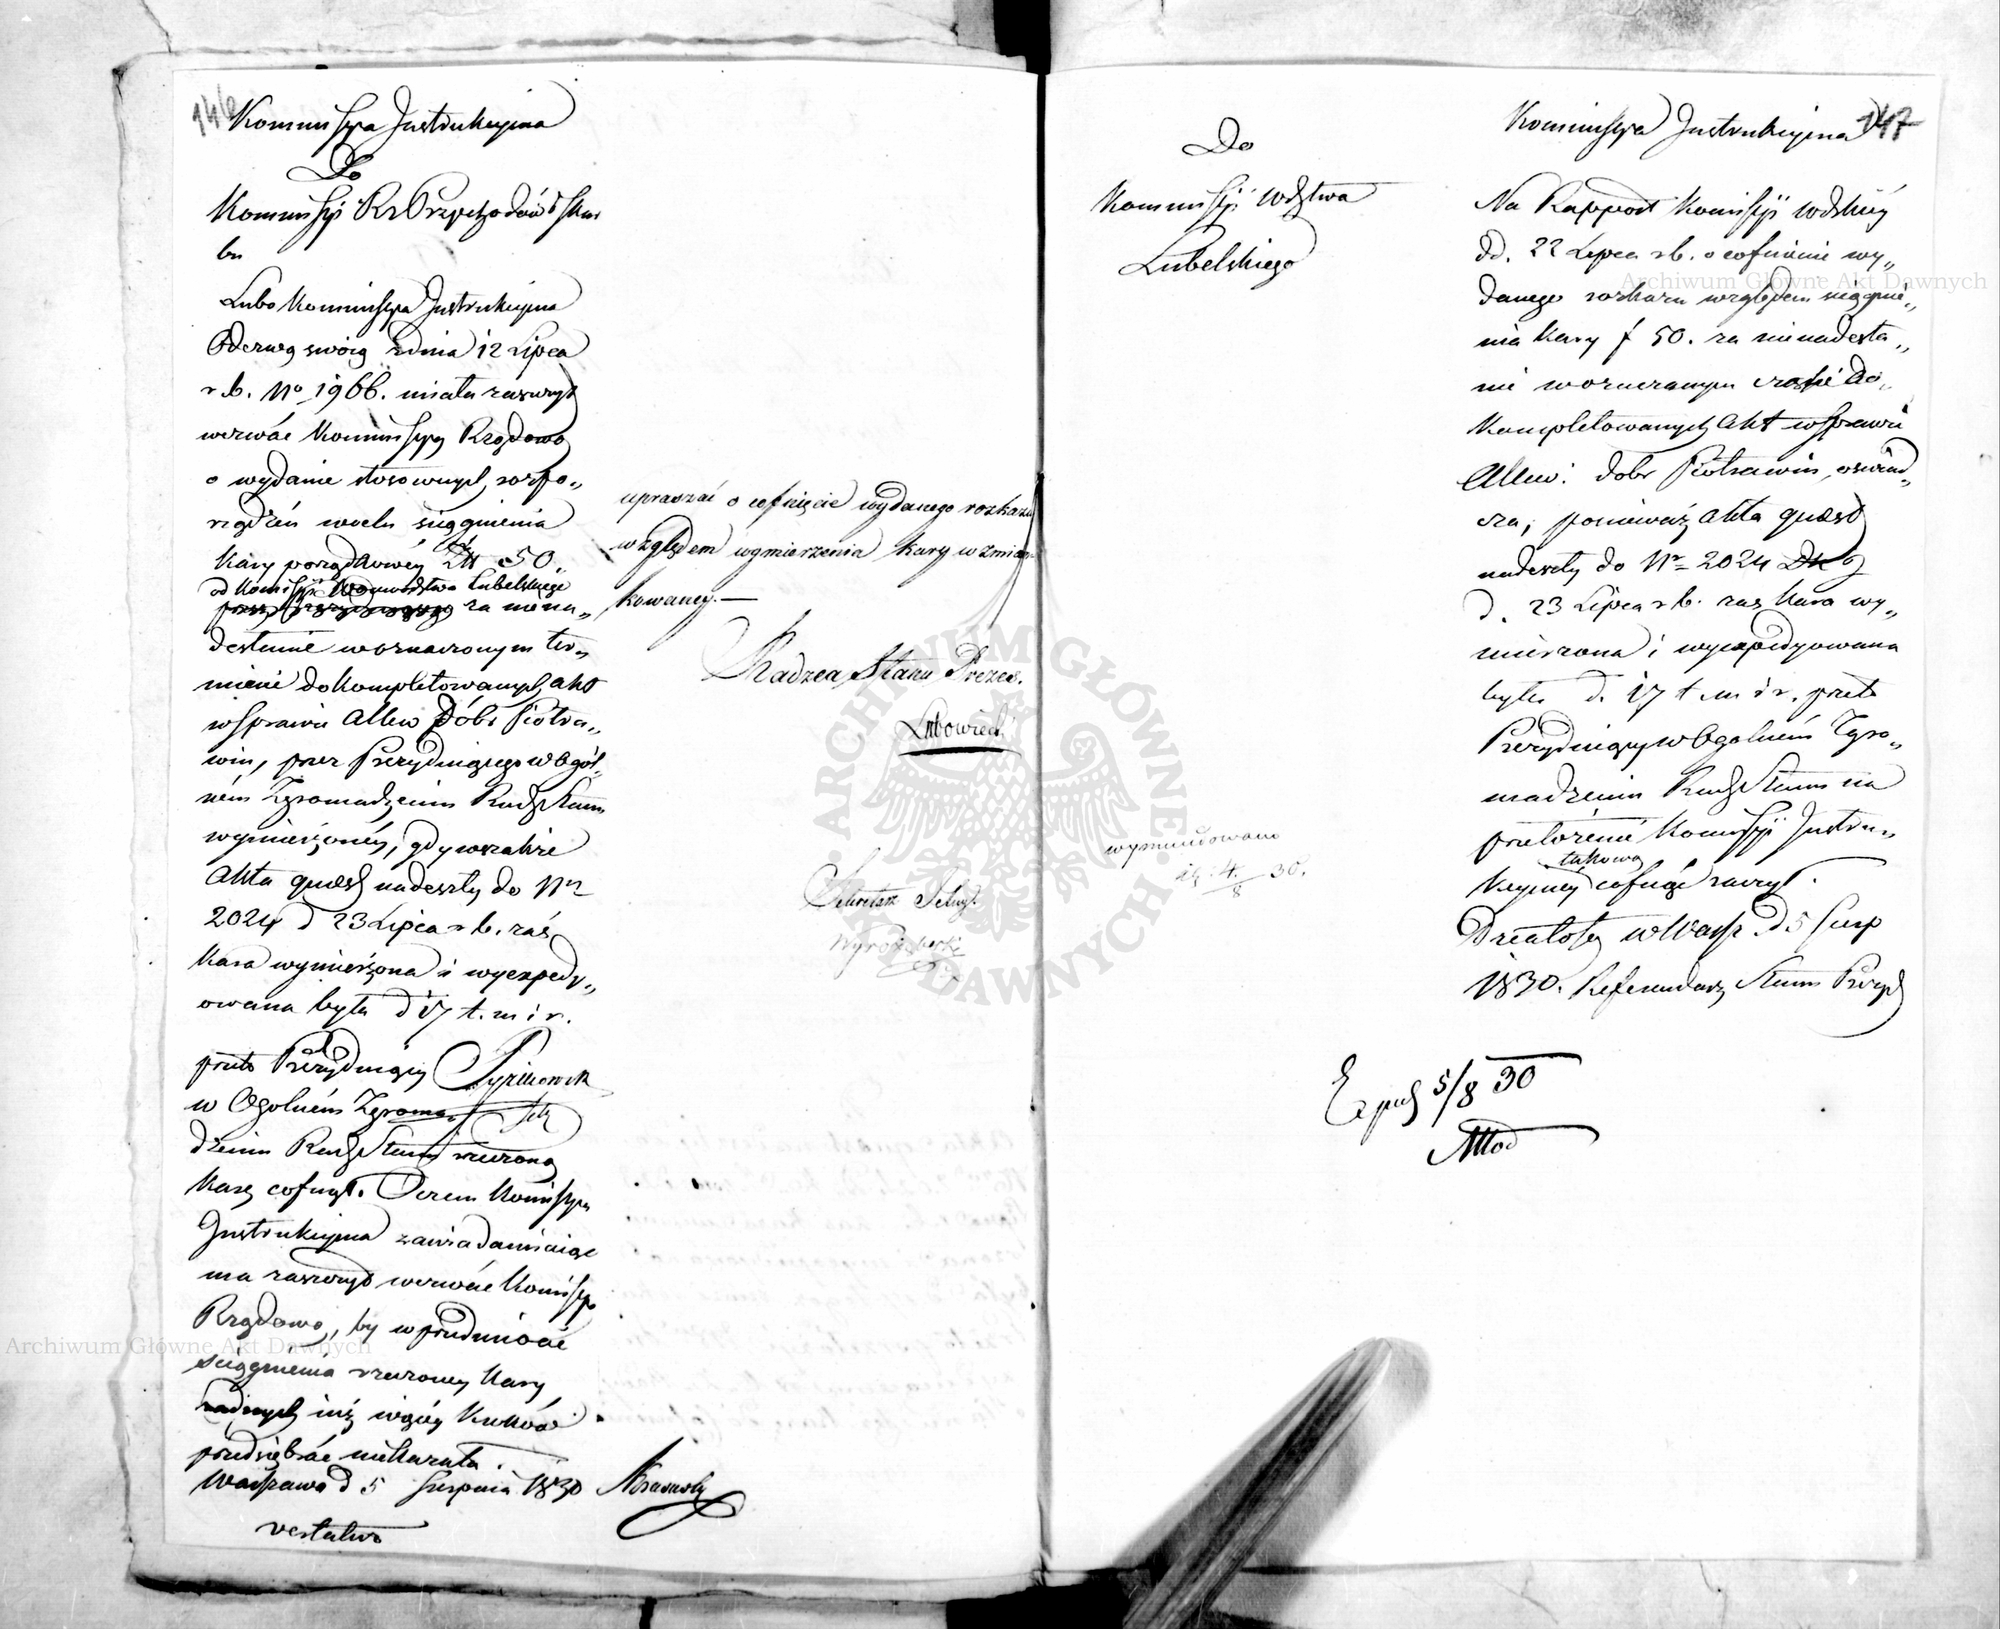 146
Kommissya Instrukcyina
Do
Kommissyi Rz Przychodów i Skar
bu
Lubo Kommissya Instrukcyina
Odezwą swoią z dnia 12 Lipca
r. b. No 1966. miała zaszczyt
wezwać Kommissyą Rządową
o wydanie stosownych rozpo„
rządzeń wcelu ściągnienia
Kary porządkowéy Zł 50.
od Komissyi Woiewództwa Lubelskiego
za niena„
desłanie w oznaczonym ter„
minie dokompletowanych akt
w sprawie Allew Dóbr Piotra„
win, przez Prezyduiącego w Ogól„
ném Zgromadzeniu Rady Stanu
wymierzonéy, gdy wszakże
Akta quaest nadeszły do Nr
2024 d 23 Lipca r. b. zaś
Kara wymierzona i wyexpedy„
owana była d 17 t. m i r.
przeto Prezyduiący
w Ogolném Zgroma„
dzeniu Rady Stanu rzeczoną
Karę cofnął. O czem Komissya
Instrukcyina zawiadamiaiąc
ma zaszczyt wezwać Komissyą
Rządową, by w przedmiocie
ściągnienia rzeczoney Kary
żadnych iuż więcéy Kroków
przedsiębrać niekazała.
Warszawa d 5 Sierpnia 1830
vertatur
upraszać o cofnięcie wydanego rozkazu
względem wymierzenia kary wzmian„
kowaney.—
Radzca Stanu Prezes.
Lubowiecki
Sekretarz
Do
Kommissyi Wdztwa
Lubelskiego
wymundowano
4/8 30.
Kommissya Instrukcyina
147
Na Rapport Komissyi Wdzkiéy
dd. 22 Lipca r b. o cofnienie wy„
danego rozkazu względem ściągnie„
nia Kary f 50. za nienadesła„
nie w oznaczonym czasie do„
kompletowanych Akt w sprawie
Allew: dobr Piotrawin, oświad„
cza, ponieważ Akta quaest
nadeszły do Nr 2024
d. 23 Lipca r b. zaś Kara wy„
mierzona i wyexpedyowana
była d. 17 t m i r. przeto
Prezyduiący w Ogolném Zgro„
madzeniu Rady Stanu na
przełożenie Komissyi Instru„
takową
kcyiney cofnąć raczył.
Działo się w Warsz. d 5 Sierp
1830. Referendarz Stanu Prezyd
Exped 5/8 30